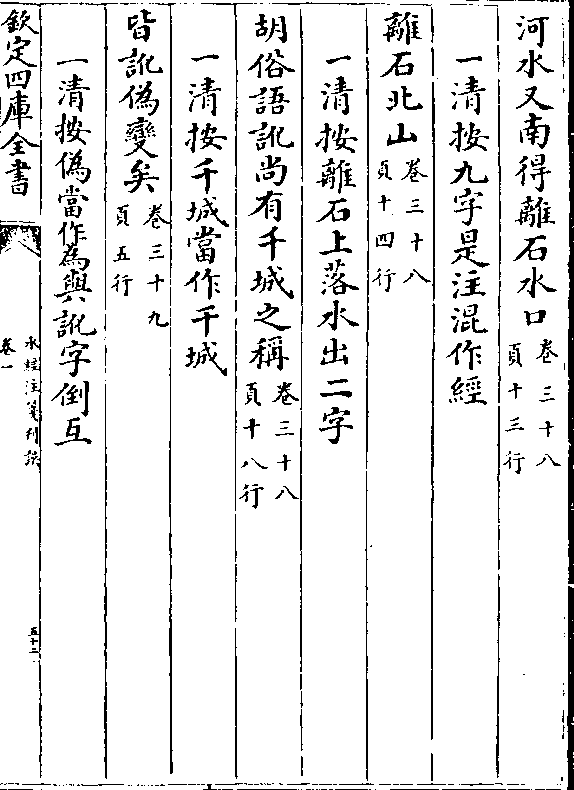 河水又南得離石水口卷三十八頁十三行
一清按九字是注混作經
離石北山卷三十八頁十四行
一清按離石上落水出二字
胡俗語訛尚有千城之稱卷三十八頁十八行
一清按千城當作千城
皆訛偽變矣卷三十九頁五行
一清按偽當作為與訛字倒互
欽定四庫全書
水經注箋刊誤
卷一
五十二